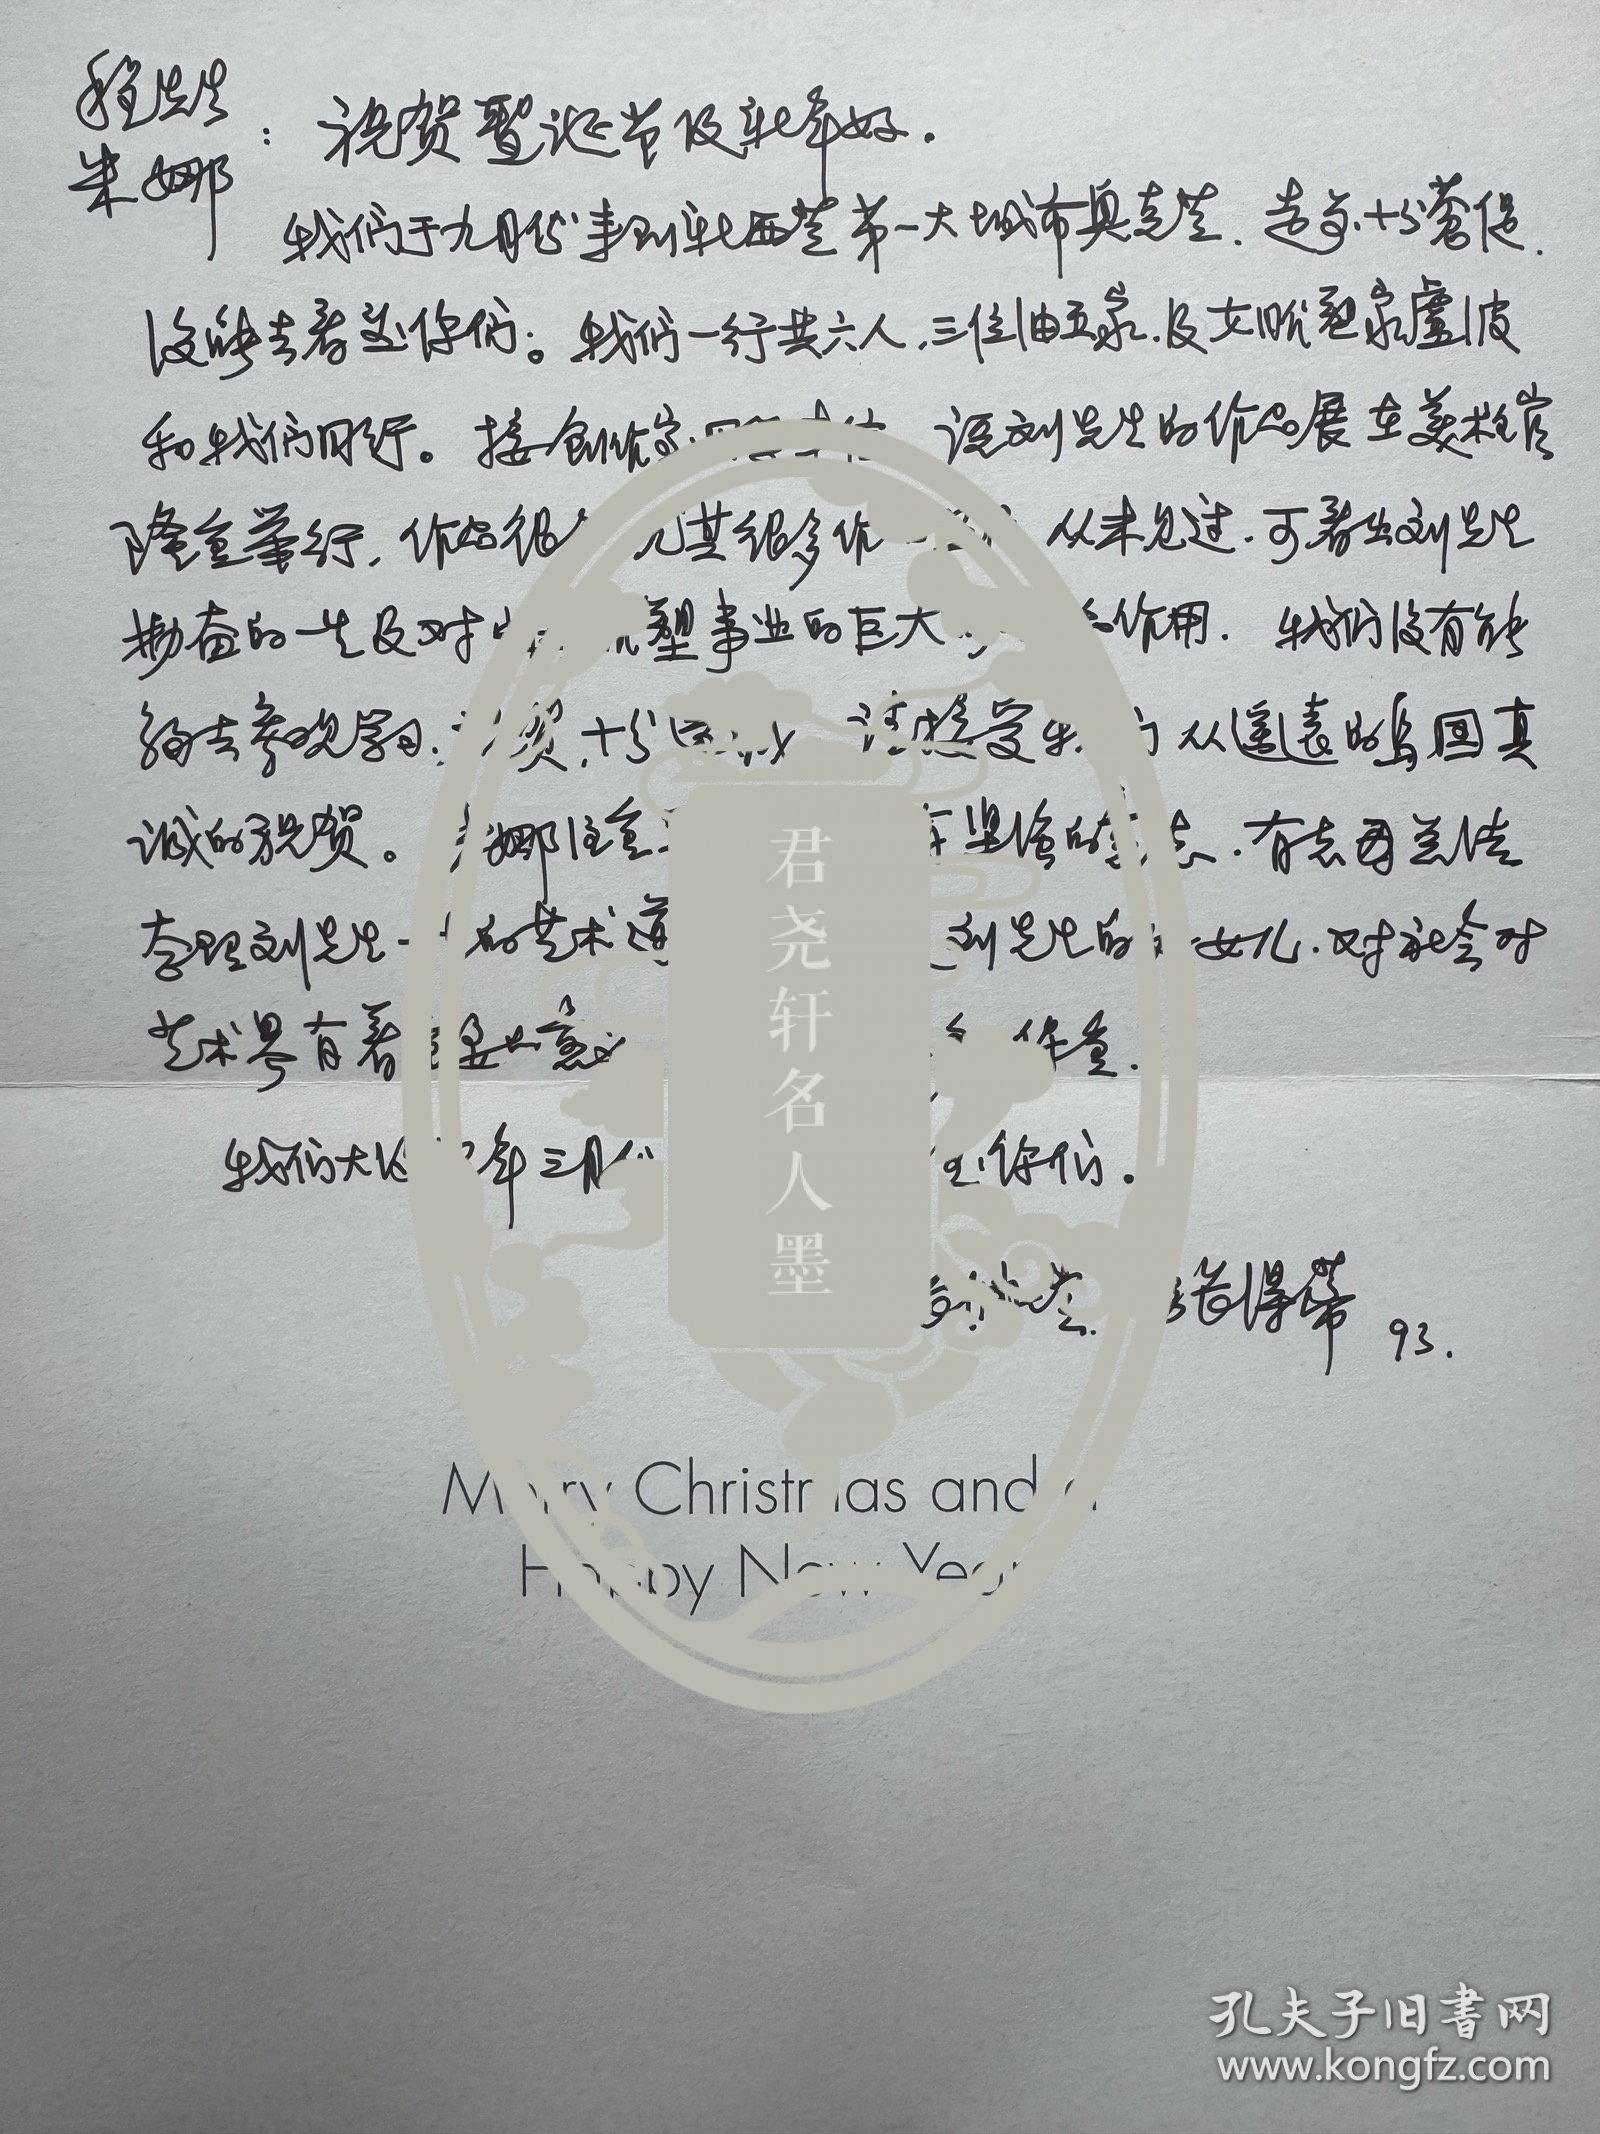 程先生
米娜
：祝贺聖诞节及新年好.
我们于九月份来到新西兰第一大城市奥克兰.走前十分蒼促.
没能去看望你们。我们一行共六人,三位油画家.及女雕塑家盧波
和我们同行。接创作室 说刘先生的作品展在美术馆
隆重举行,作品很 尤其很多作 从未见过.可看出刘先生
勤奋的一生及对中 雕塑事业的巨大 作用. 我们没有能
够去参观学习,祝贺,十分 请接受我们从遥远的岛国真
诚的祝贺。 米娜 坚强的意志.有志再总结
整理刘先生一生的艺术道 刘先生的 女儿.对社会对
艺术界有着重要的意义 保重.
我们大约 年三月份 望你们。
新西兰. 得蒂 93.
Merry Christmas and a
Happy New Year
君尧轩名人墨
孔夫子旧书网
www.kongfz.com